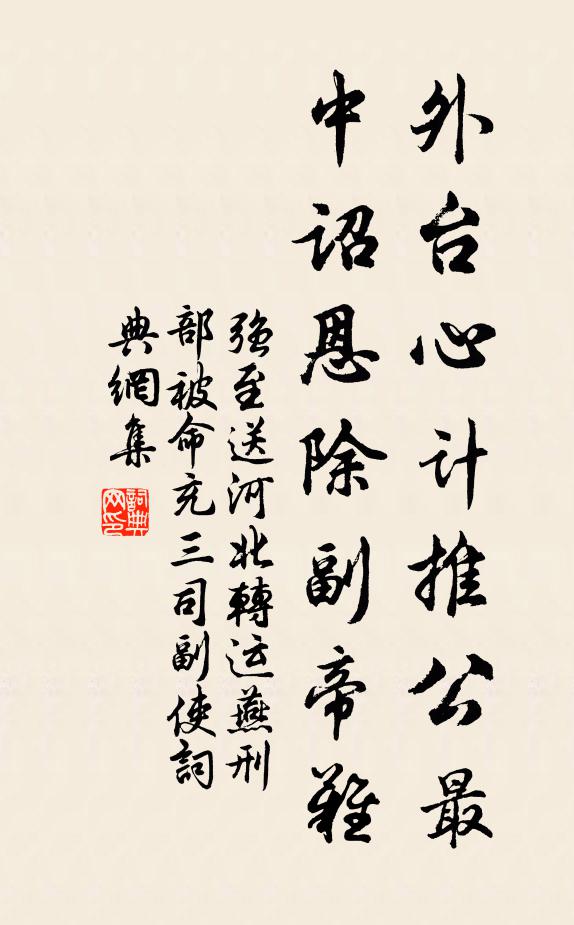 外台心计推公最
中诏恩除副帝难
强至送河北轉运燕刑
部被命充三司副使詞
典網集
詞典网印